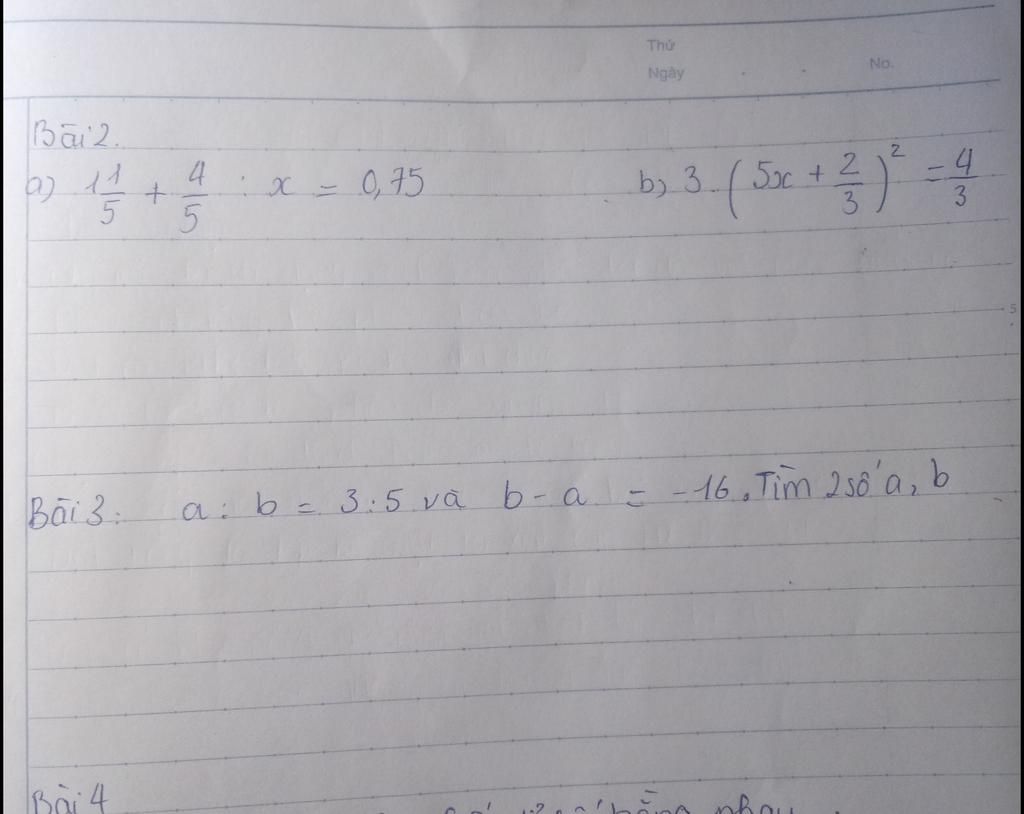 Thứ
Ngày . . No.
Bài 2.
a) 1 1/5 + 4/5 : x = 0,75 b) 3. (5x + 2/3)² = 4/3
5
Bài 3: a : b = 3 : 5 và b - a = -16. Tìm 2 số a, b
Bài 4
bằng nhau